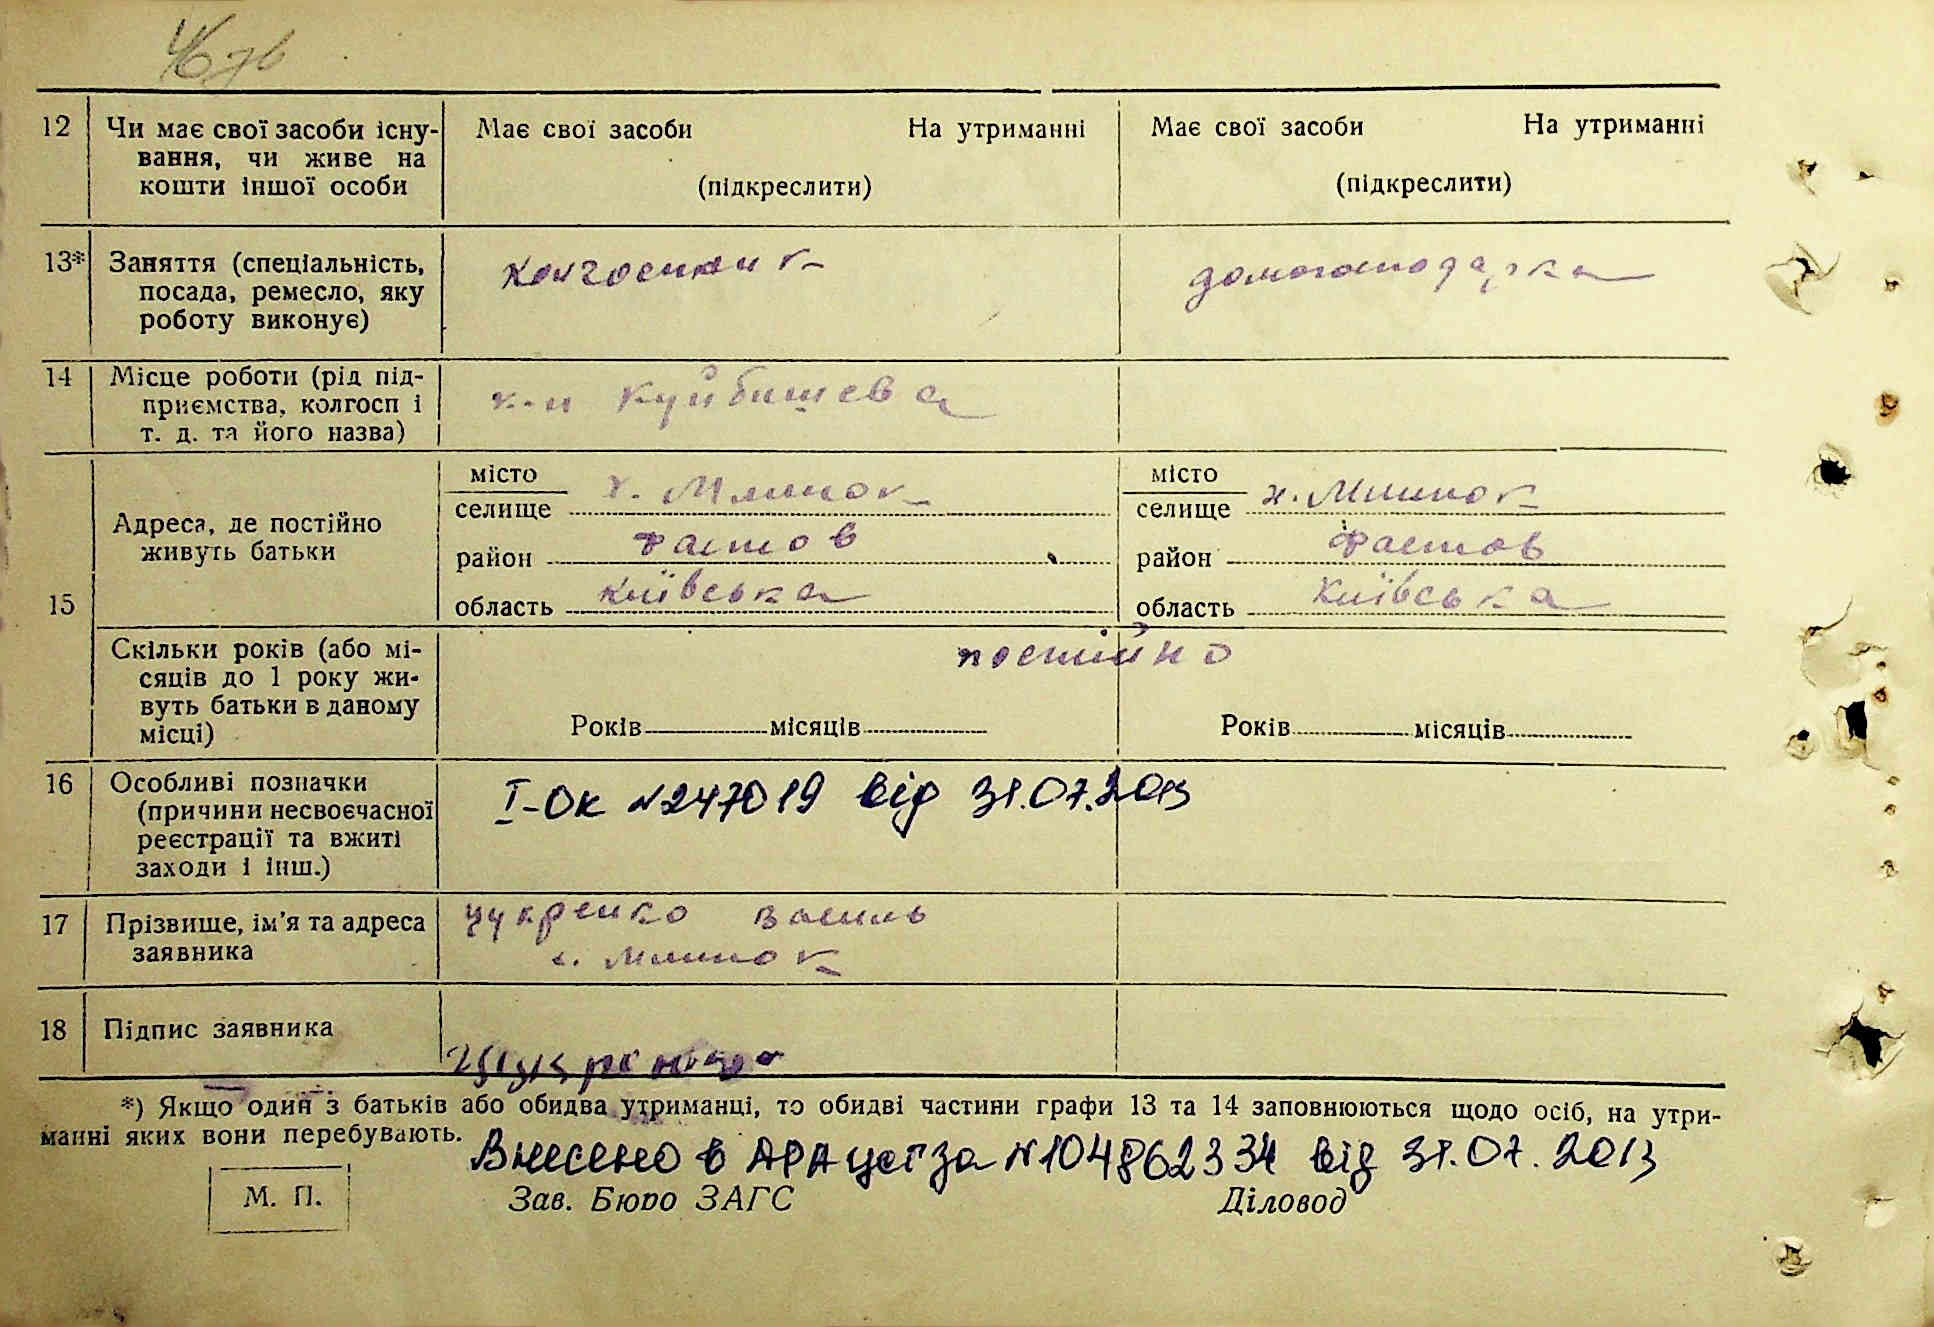 12
Чи має свої засоби існу-
вання, чи живе на
кошти іншої особи
Має свої засоби На утриманні
(підкреслити)
Має свої засоби На утриманні
(підкреслити)
13*
Заняття (спеціальність,
посада, ремесло, яку
роботу виконує)
колгоспник
домогосподарка
14
Місце роботи (рід під-
приємства, колгосп і
т. д. та його назва)
к-п Куйбишева
15
Адреса, де постійно
живуть батьки
місто
селище х. Млинок
район Фастов
область Київська
місто
селище х. Млинок
район Фастов
область Київська
Скільки років (або мі-
сяців до 1 року жи-
вуть батьки в даному
місці)
постійно
Років місяців
Років місяців
16
Особливі позначки
(причини несвоєчасної
реєстрації та вжиті
заходи і інш.)
І-ОК №247019 від 31.07.2013
17
Прізвище, ім'я та адреса
заявника
Цукренко Василь
с. Млинок
18
Підпис заявника
*) Якщо один з батьків або обидва утриманці, то обидві частини графи 13 та 14 заповнюються щодо осіб, на утри-
манні яких вони перебувають.
Внесено в АРАцсг за №104862334 від 31.07.2013
М. П.
Зав. Бюро ЗАГС Діловод